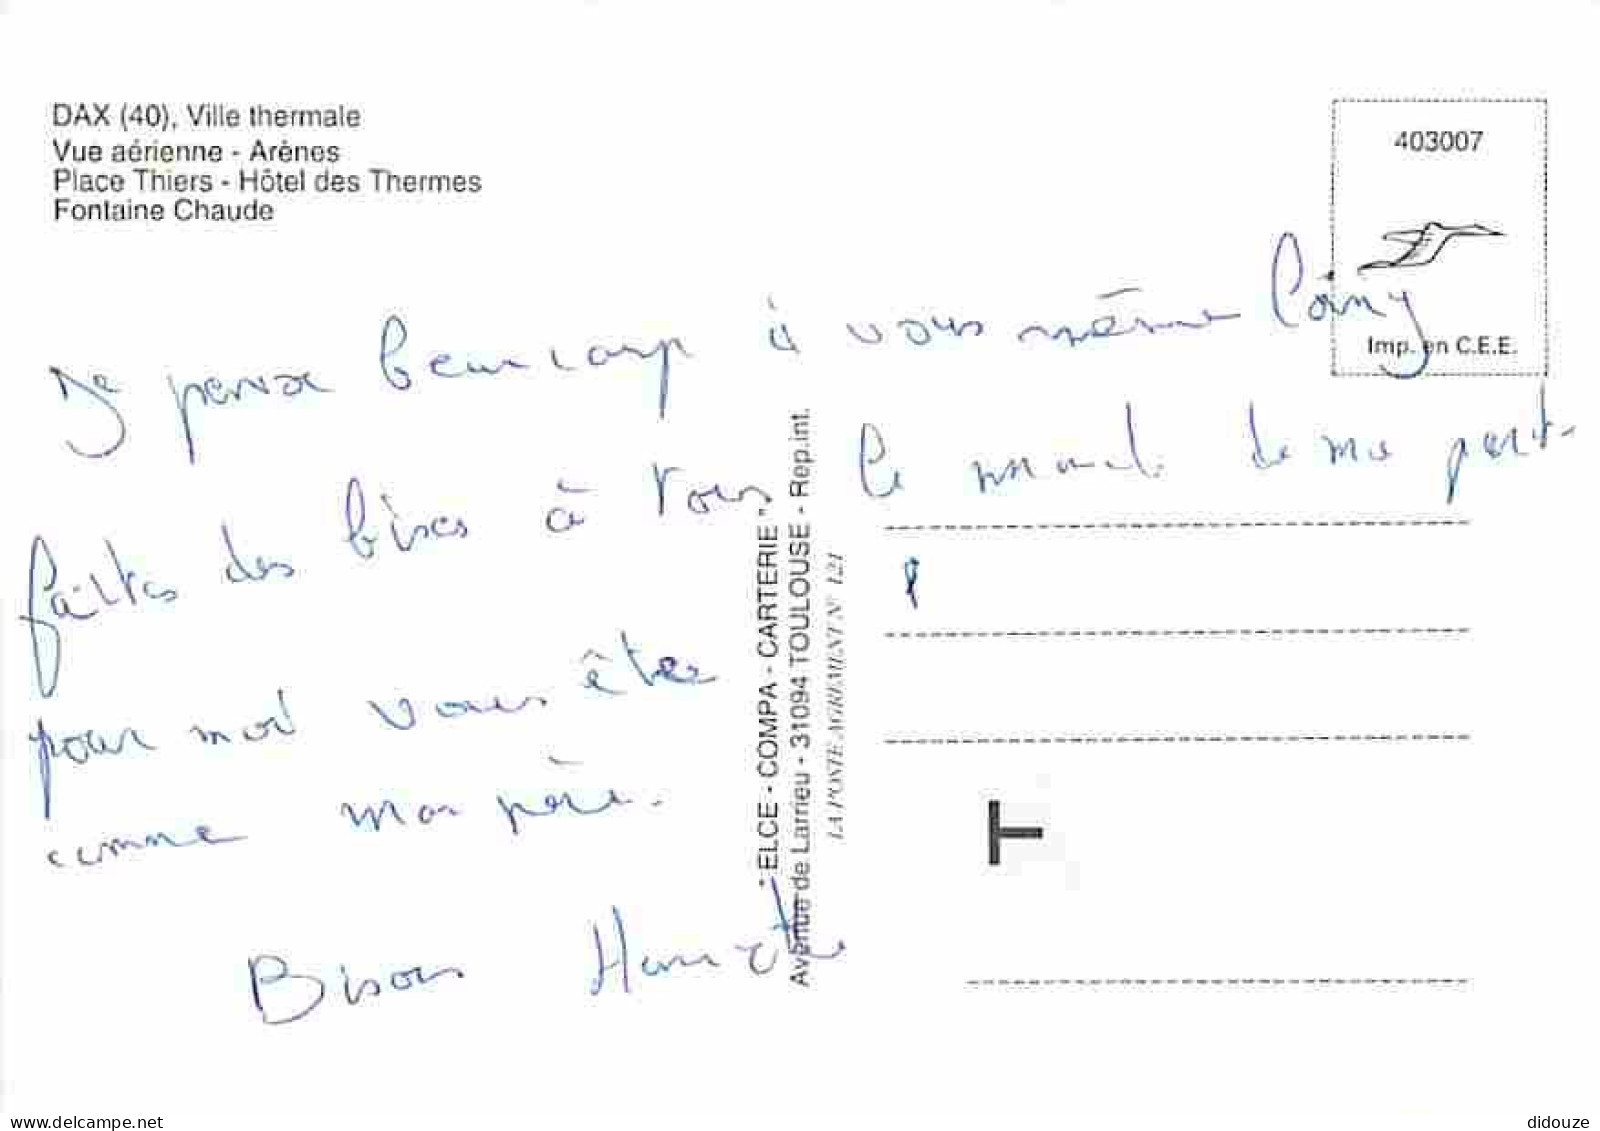 DAX (40), Ville thermale
Vue aérienne - Arènes
Place Thiers - Hôtel des Thermes
Fontaine Chaude
403007
Imp. en C.E.E.
Je pense beaucoup à vous même loing
faites des bises à tous le monde de ma part.
pour moi vous êtes
comme mon père.
Bisous
" ELCE - COMPA - CARTERIE "
Avenue de Larrieu - 31094 TOULOUSE - Rep.int.
LA POSTE AGREMENT N° 121
T
delcampe.net
didouze